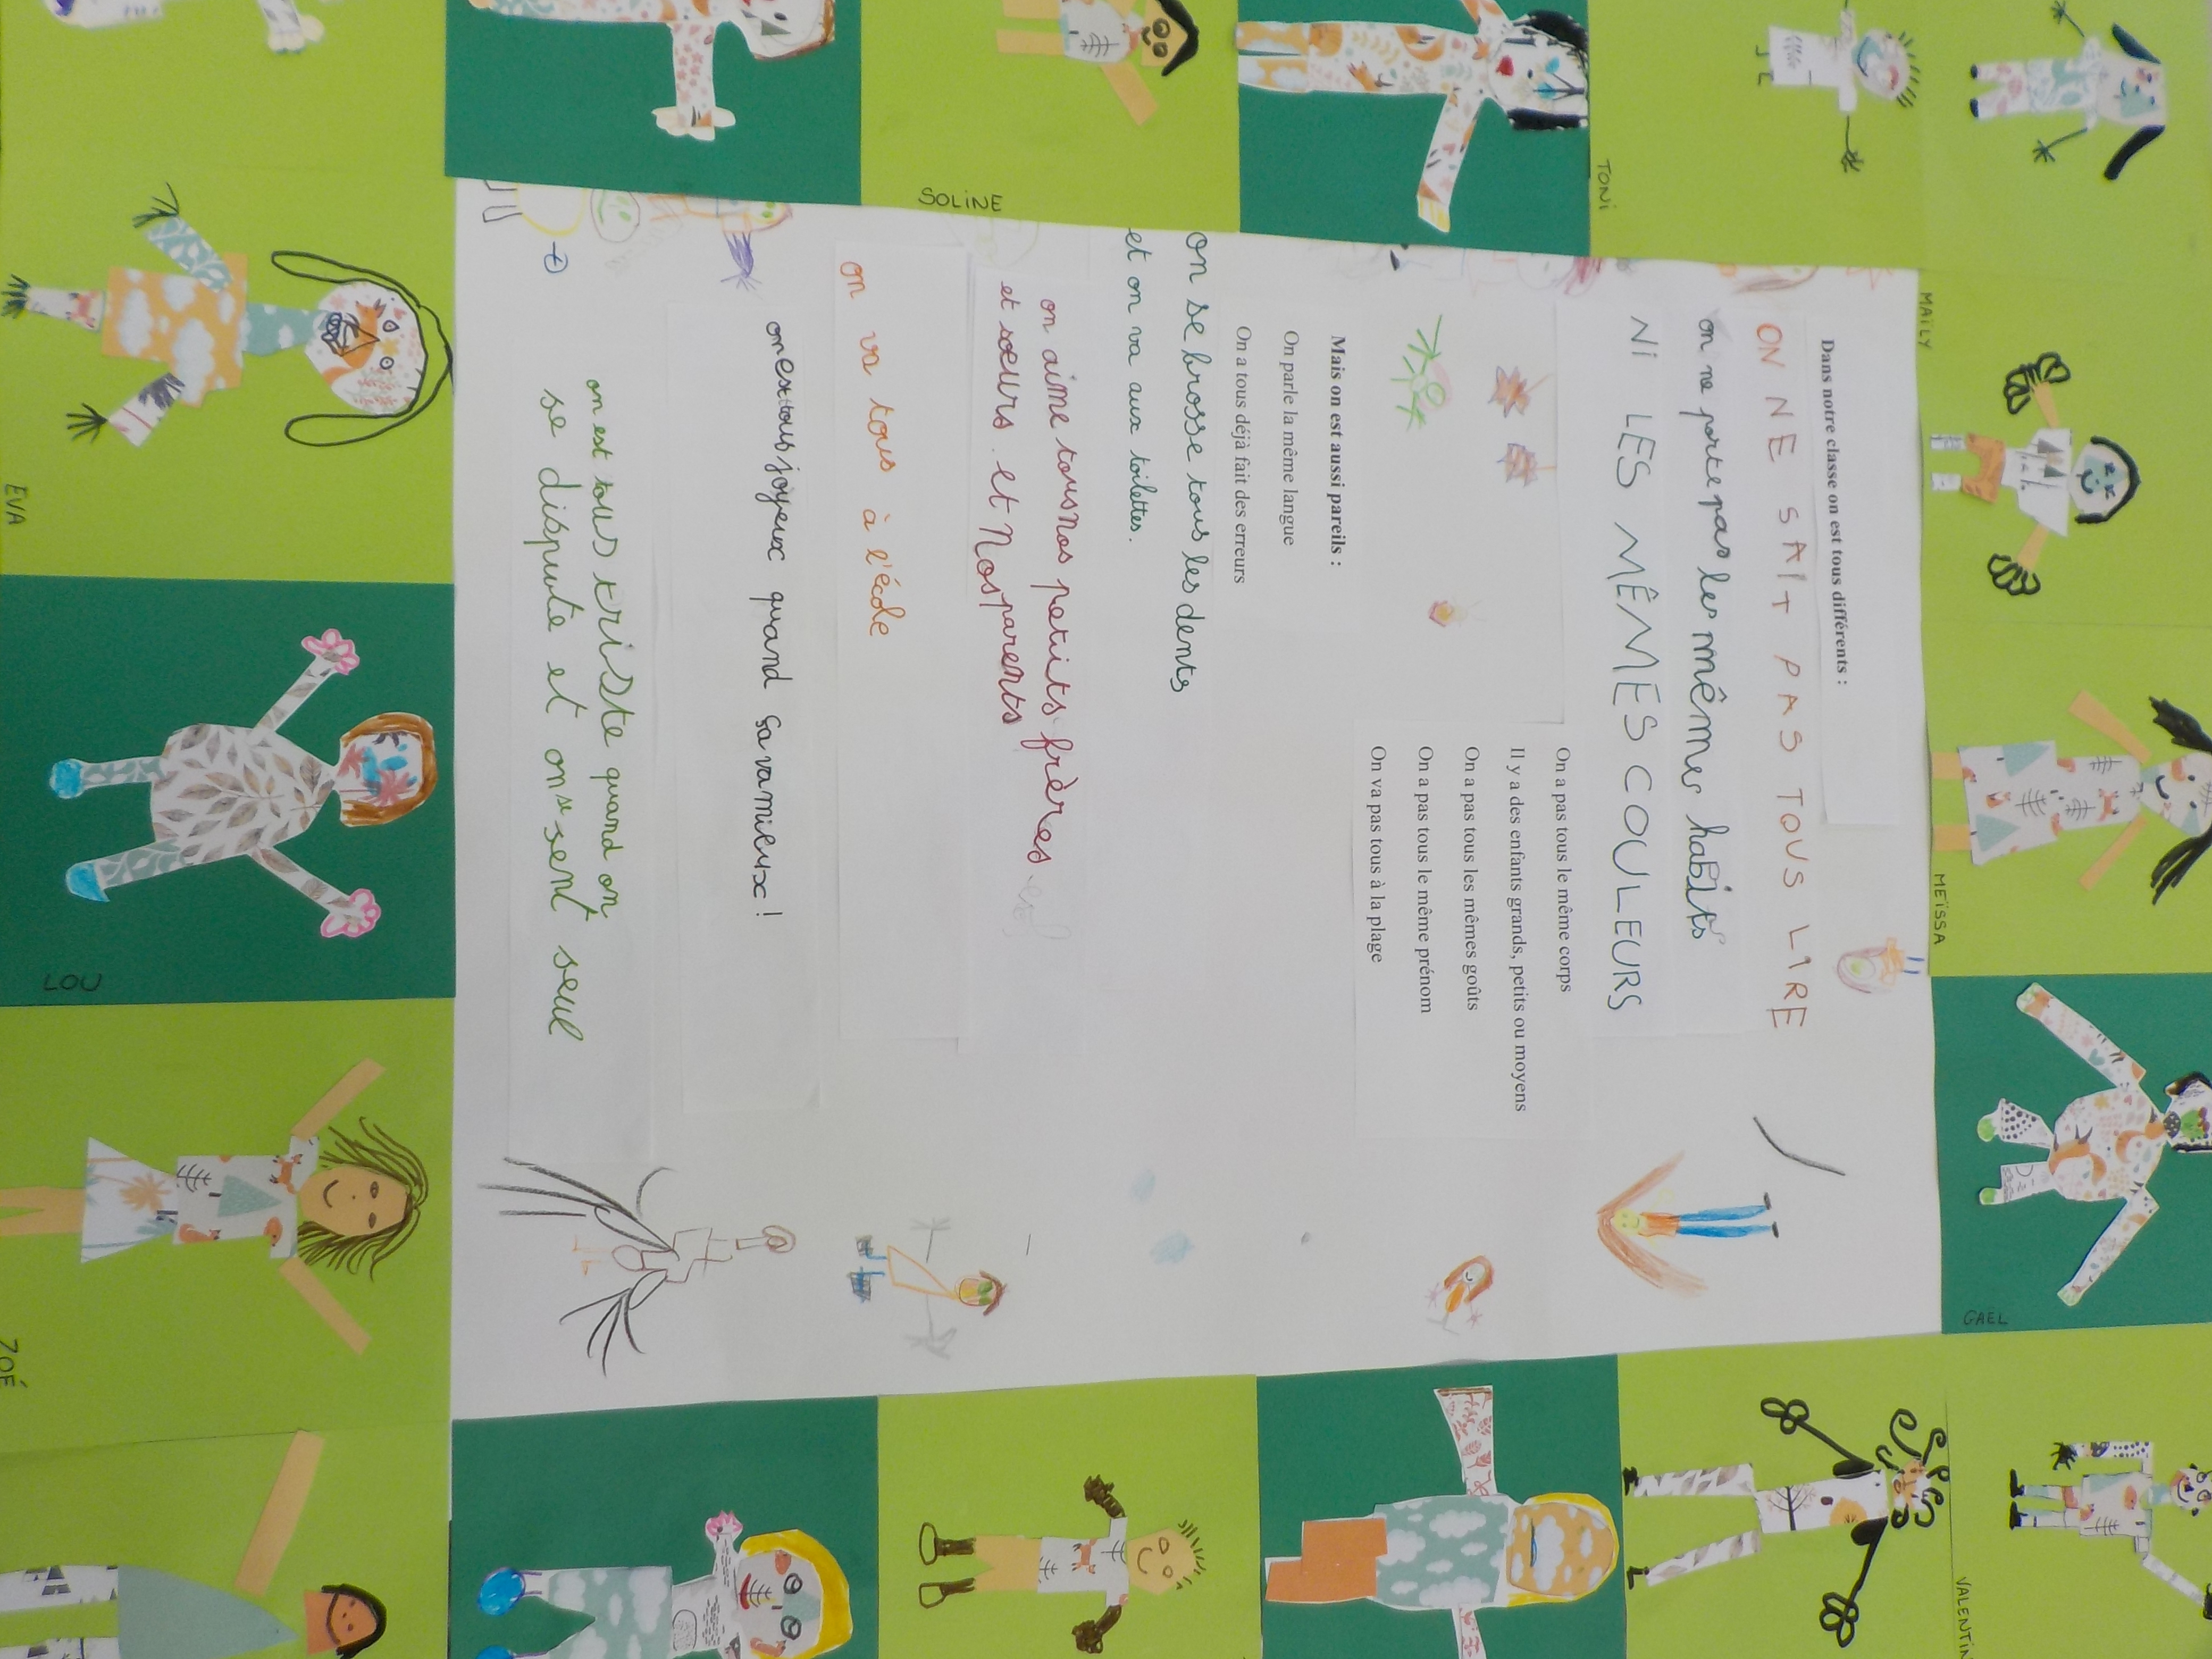 Dans notre classe on est tous différents :
ON NE SAIT PAS TOUS LIRE
on ne porte pas les mêmes habits
NI LES MÊMES COULEURS
On a pas tous le même corps
Il y a des enfants grands, petits ou moyens
On a pas tous les mêmes goûts
On a pas tous le même prénom
On va pas tous à la plage
Mais on est aussi pareils :
On parle la même langue
On a tous déjà fait des erreurs
on se brosse tous les dents
et on va aux toilettes.
on aime tous nos petits frères
et sœurs. et Nos parents
on va tous à l'école
on est tous joyeux quand ça va mieux!
on est tous triste quand on
se dispute et on se sent seul
SOLINE
TONI
MAÏLY
MEÏSSA
GAEL
VALENTIN
EVA
LOU
ZOÉ